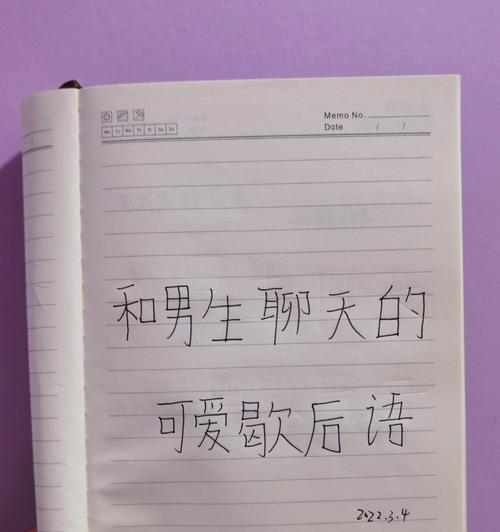 Memo No.
Mo Tu We Th Fr Sa Su
Date / /
和男生聊天的
可爱歇后语
2022.3.4